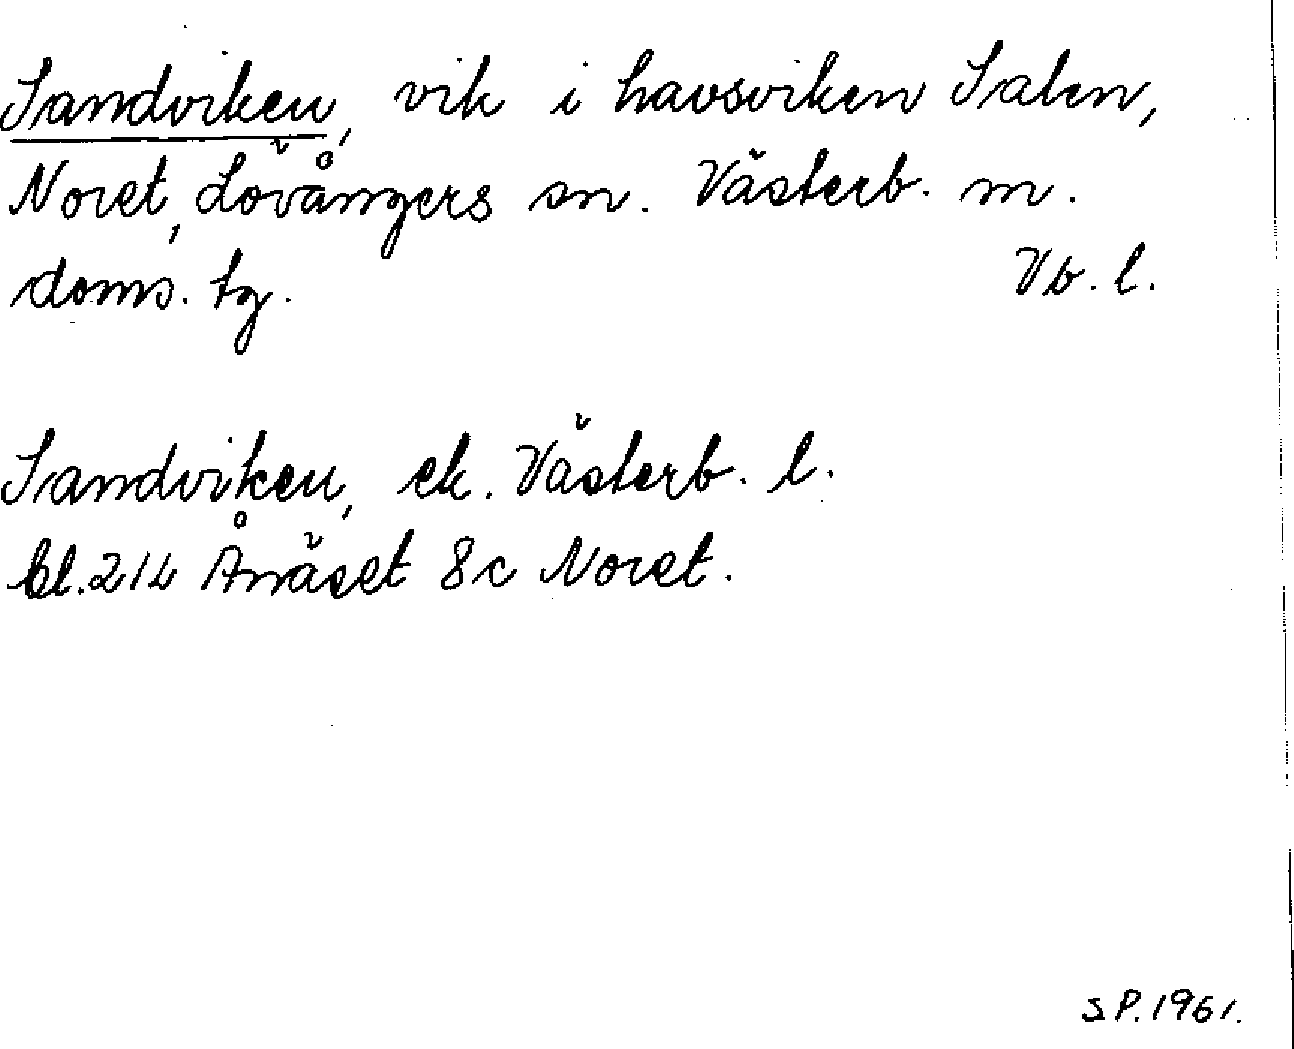 Sandviken, vik i havsviken Salen,
Noret, Lövångers sn. Västerb. m.
doms. tg. Vb. l.
Sandviken, ek. Västerb. l.
bl. 214 Ånäset 8c Noret.
S P. 1961.